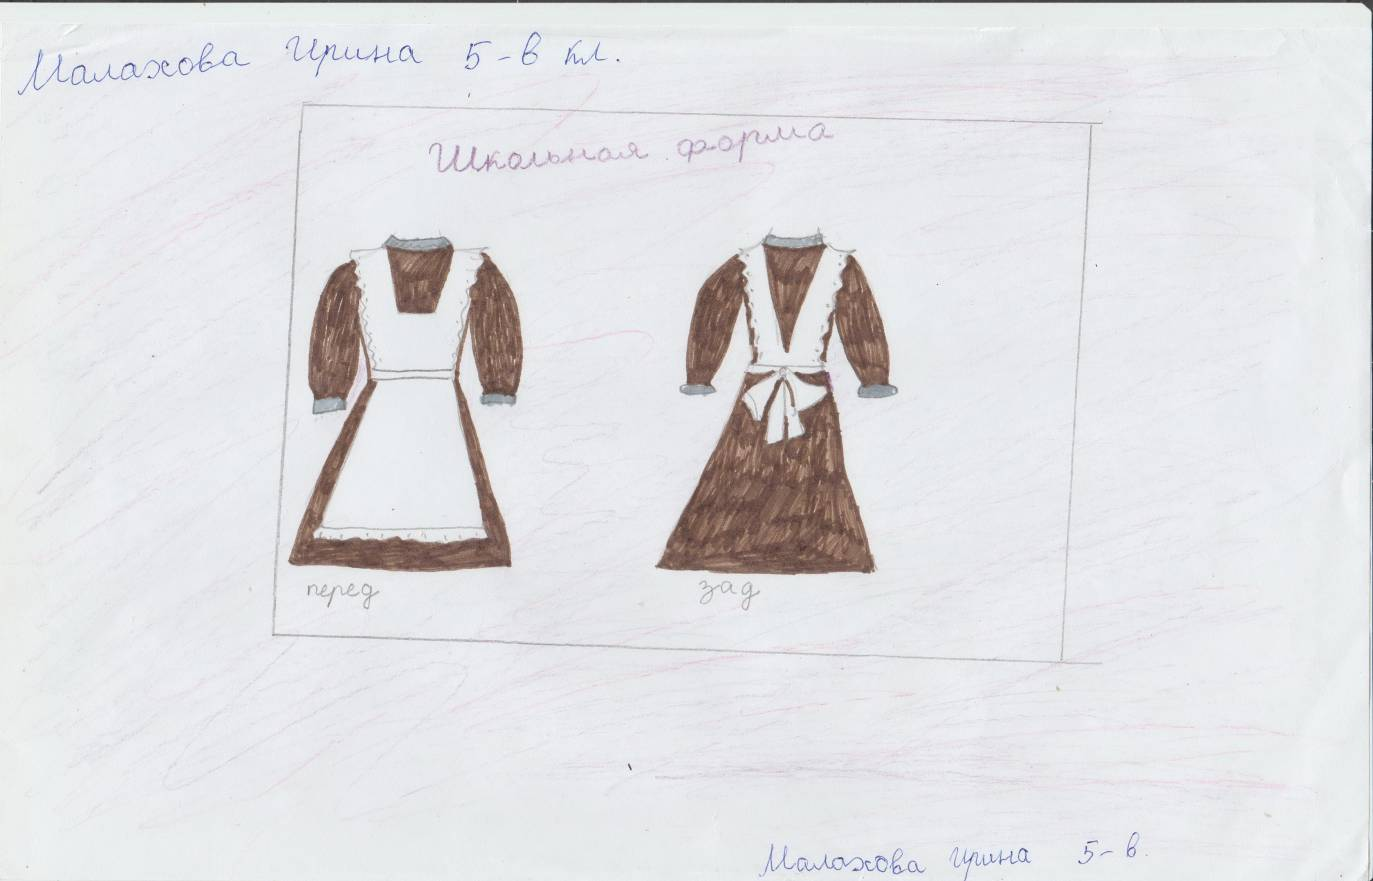 Малахова Ирина 5-в кл.
Школьная форма
перед
зад
Малахова Ирина 5-в